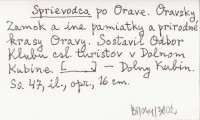 Sprievodca po Orave. Oravský
Zámok a iné pamiatky a prírodné
krásy Oravy. Sostavil Odbor
Klubu čsl. turistov v Dolnom
Kubíne. [ ] - Dolný Kubín.
Ss. 47, il., opr., 16 cm.